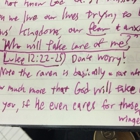 not know God
we live our lives trying to
us' kingdoms, our fear & anxi
Who will take care of me?
Luke 12:22-25 Don't worry!
Note the raven is basically a
much more that God will take
you, if He even cares for those,